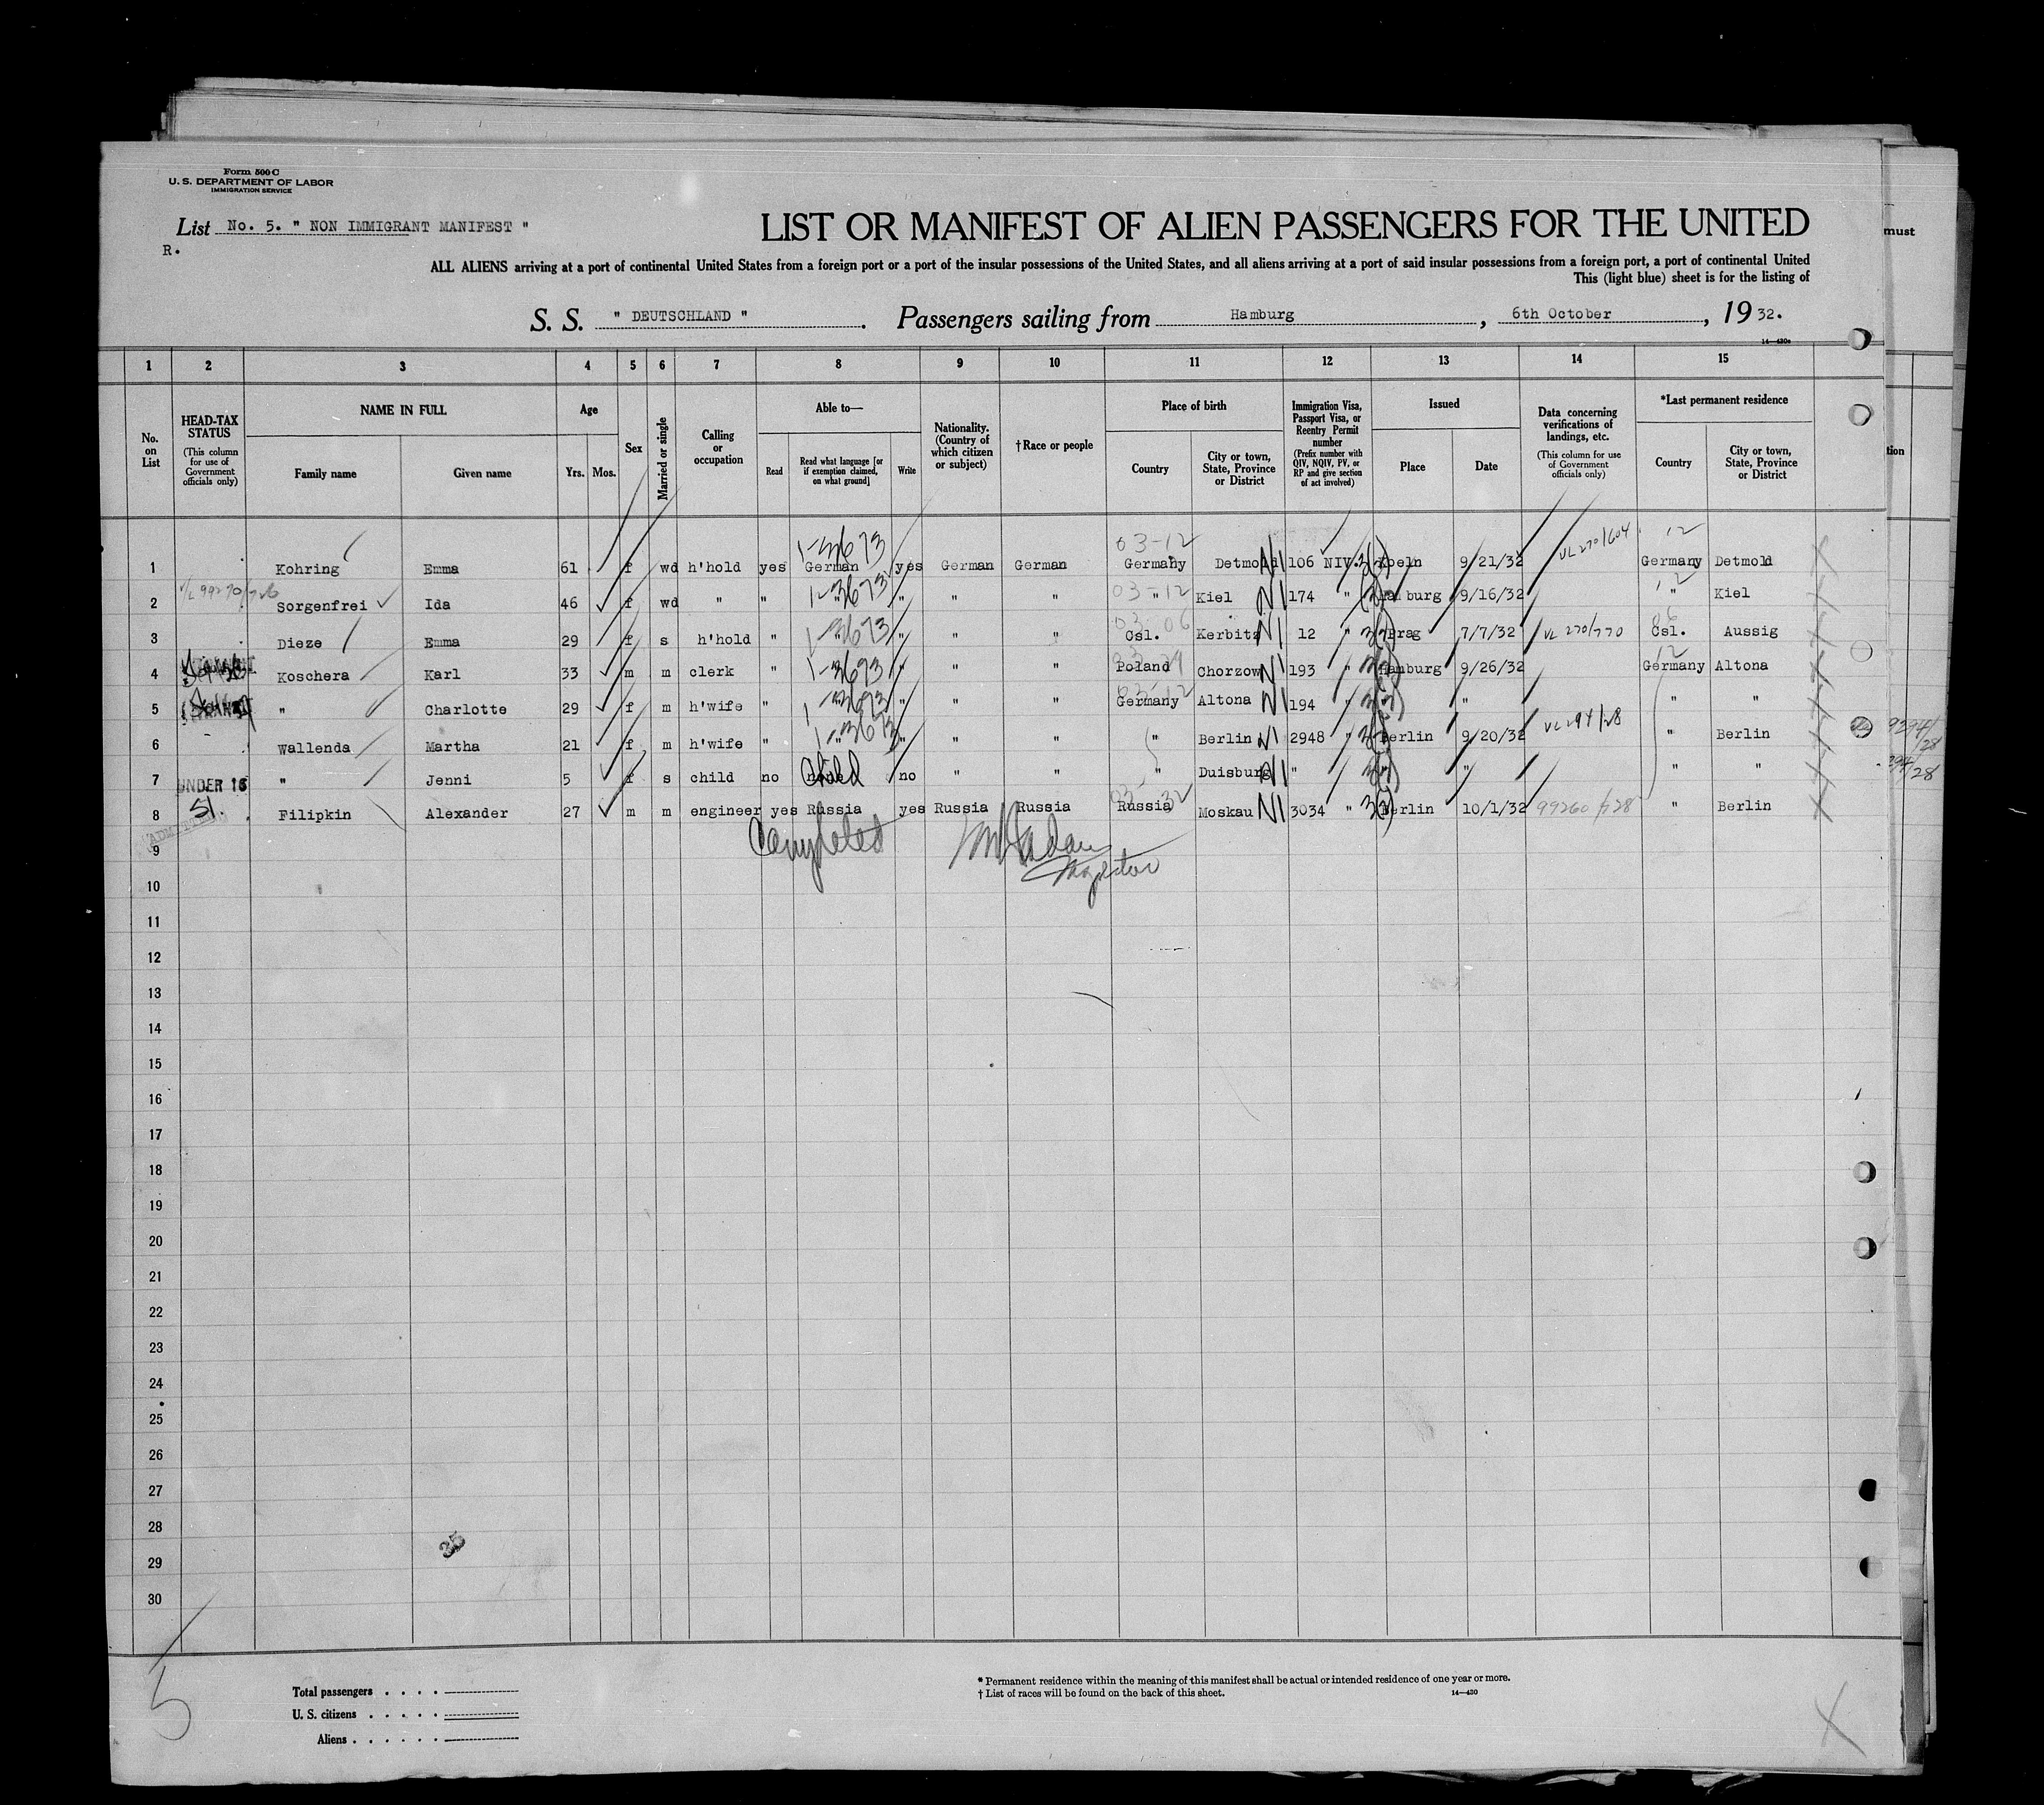 Form 500 C
U. S. DEPARTMENT OF LABOR
IMMIGRATION SERVICE
List No. 5. " NON IMMIGRANT MANIFEST "
R.
LIST OR MANIFEST OF ALIEN PASSENGERS FOR THE UNITED
ALL ALIENS arriving at a port of continental United States from a foreign port or a port of the insular possessions of the United States, and all aliens arriving at a port of said insular possessions from a foreign port, a port of continental United
This (light blue) sheet is for the listing of
S. S. " DEUTSCHLAND ". Passengers sailing from Hamburg, 6th October, 1932.
must
1 2 3 4 5 6 7 8 9 10 11 12 13 14 15
No. on List
HEAD-TAX STATUS (This column for use of Government officials only)
NAME IN FULL
Family name Given name
Age
Yrs. Mos.
Sex
Married or single
Calling or occupation
Able to—
Read Read what language [or if exemption claimed, on what ground] Write
Nationality. (Country of which citizen or subject)
† Race or people
Place of birth
Country City or town, State, Province or District
Immigration Visa, Passport Visa, or Reentry Permit number (Prefix number with QIV, NQIV, PV, or RP and give section of act involved)
Issued
Place Date
Data concerning verifications of landings, etc. (This column for use of Government officials only)
*Last permanent residence
Country City or town, State, Province or District
tion
1 Kohring Emma 61 f wd h'hold yes German yes German German Germany Detmold NI 106 NIV. 3(2) Koeln 9/21/32 VL 270/604 Germany Detmold
2 Sorgenfrei Ida 46 f wd " " " " " " " Kiel NI 174 " Hamburg 9/16/32 " Kiel
3 Dieze Emma 29 f s h'hold " " " " " Csl. Kerbitz NI 12 " Prag 7/7/32 VL 270/770 Csl. Aussig
4 Koschera Karl 33 m m clerk " " " " Poland Chorzow NI 193 " Hamburg 9/26/32 Germany Altona
5 " Charlotte 29 f m h'wife " " " " " Germany Altona NI 194 " " " "
6 Wallenda Martha 21 f m h'wife " " " " " " Berlin NI 2948 " Berlin 9/20/32 VL 294/28 " Berlin
7 UNDER 16 " Jenni 5 f s child no child no " " " Duisburg NI " " " "
8 51. Filipkin Alexander 27 m m engineer yes Russia yes Russia Russia Russia Moskau NI 3034 " Berlin 10/1/32 99260/128 " Berlin
Completed
Inspector
9
10
11
12
13
14
15
16
17
18
19
20
21
22
23
24
25
26
27
28
29
30
35
5
Total passengers
U. S. citizens
Aliens
* Permanent residence within the meaning of this manifest shall be actual or intended residence of one year or more.
† List of races will be found on the back of this sheet.
14—430